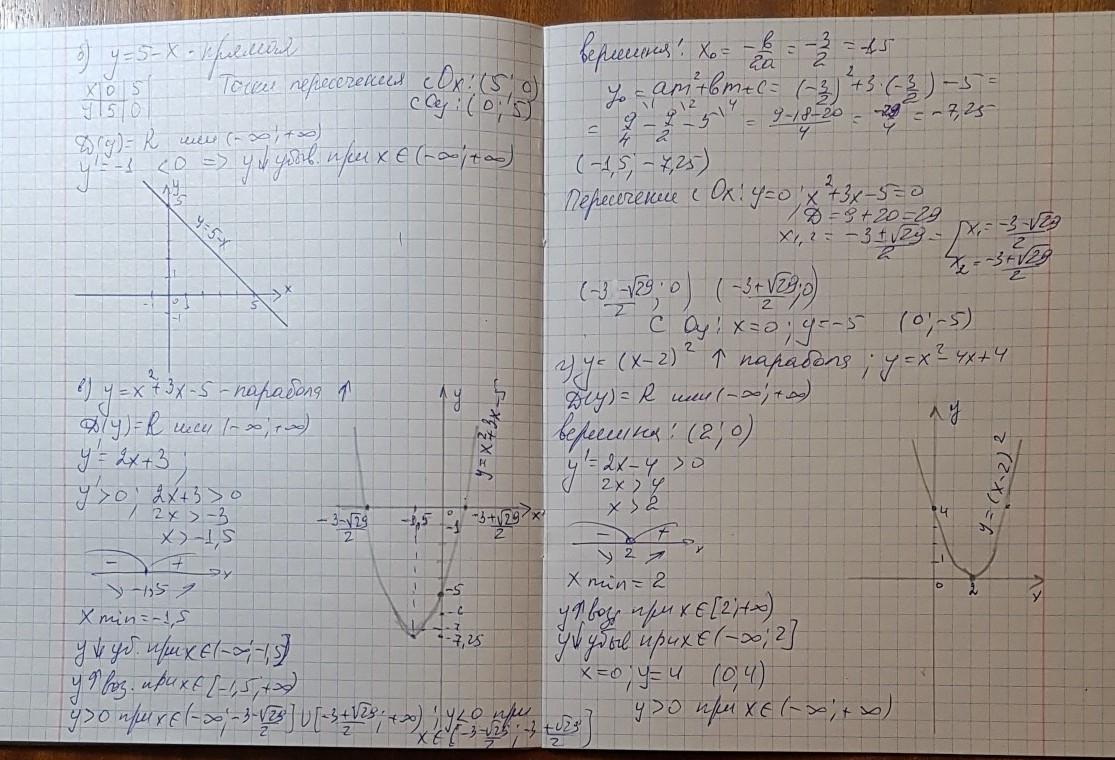 б) y=5-x - прямая
x|0|5|
y|5|0|
Точки пересечения с Ox: (5; 0)
с Oy: (0; 5)
D(y)=R или (-∞; +∞)
y'=-1 <0 => y↓ убыв. при x∈(-∞; +∞)
y
5
y=5-x
1
-1 0 1 5 x
-1
в) y=x²+3x-5 - парабола ↑
D(y)=R или (-∞; +∞)
y'=2x+3;
y'>0; 2x+3>0
2x>-3
x>-1,5
- +
↘ -1,5 ↗ x
x min=-1,5
y↓ уб. при x∈(-∞; -1,5]
y↑ воз. при x∈[-1,5; +∞)
y>0 при x∈(-∞; (-3-√29)/2]∪[(-3+√29)/2; +∞); y<0 при
x∈[(-3-√29)/2; (-3+√29)/2]
y
y=x²+3x-5
(-3-√29)/2 -1,5 0 (-3+√29)/2 x
-1
-5
-6
-7
-7,25
вершина: x₀=-b/2a=-3/2=-1,5
y₀=am²+bm+c=(-3/2)²+3·(-3/2)-5=
=9/4-9/2-5=(9-18-20)/4=-29/4=-7,25
(-1,5; -7,25)
Пересечение с Ox: y=0; x²+3x-5=0
D=9+20=29
x₁,₂=(-3±√29)/2=[x₁=(-3-√29)/2
x₂=(-3+√29)/2
((-3-√29)/2; 0) ((-3+√29)/2; 0)
с Oy: x=0; y=-5 (0; -5)
г) y=(x-2)² ↑ парабола; y=x²-4x+4
D(y)=R или (-∞; +∞)
вершина: (2; 0)
y'=2x-4>0
2x>4
x>2
- +
↘ 2 ↗ x
x min=2
y↑ воз при x∈[2; +∞)
y↓ убыв при x∈(-∞; 2]
x=0; y=4 (0; 4)
y>0 при x∈(-∞; +∞)
y
y=(x-2)²
4
1
0 2 x